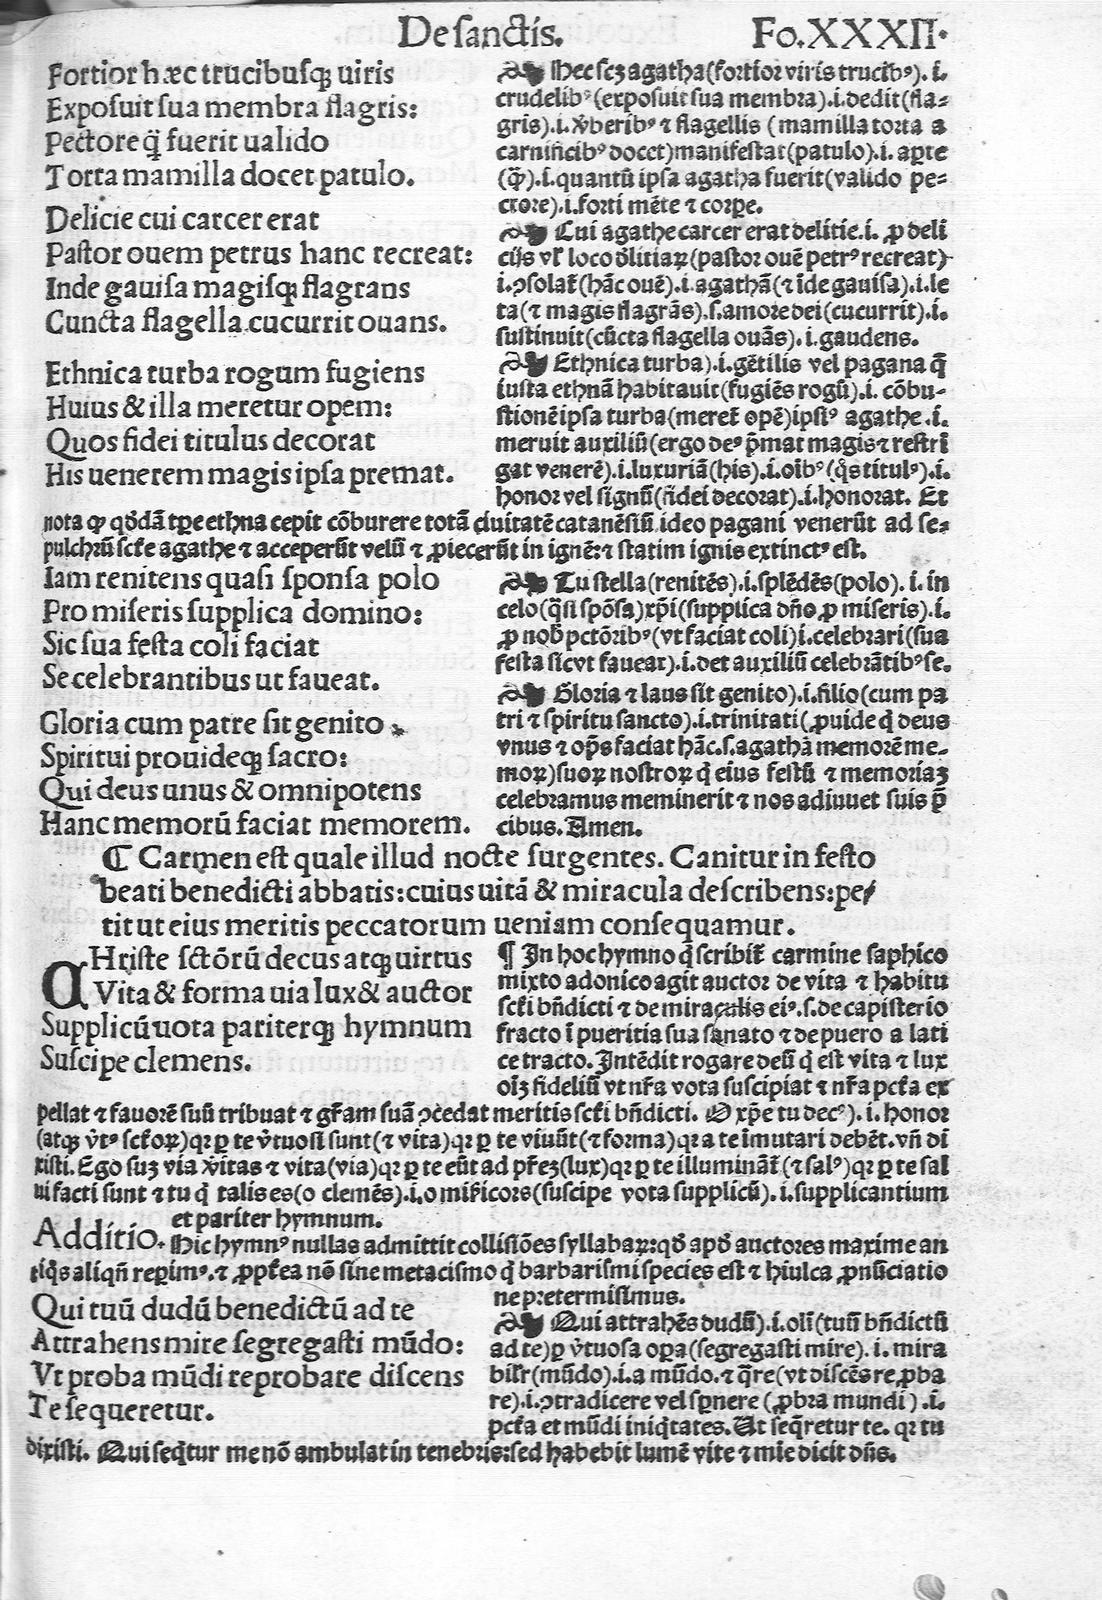 De sanctis.
Fo.XXXII.
Fortior hæc trucibusq; uiris
Exposuit sua membra flagris:
Pectore q̃ fuerit ualido
Torta mamilla docet patulo.
Delicie cui carcer erat
Pastor ouem petrus hanc recreat:
Inde gauisa magisq; flagrans
Cuncta flagella cucurrit ouans.
Ethnica turba rogum fugiens
Huius & illa meretur opem:
Quos fidei titulus decorat
His uenerem magis ipsa premat.
Hec scꝫ agatha (fortior viris trucibꝰ). i.
crudelibꝰ (exposuit sua membra).i.dedit (fla-
gris).i.v̾beribꝰ ⁊ flagellis (mamilla torta a
carnificibꝰ docet) manifestat (patulo).i. apte
(q̃).i.quantũ ipsa agatha fuerit (valido pe-
ctore).i.forti mẽte ⁊ corpe.
Cui agathe carcer erat delitie.i. ꝓ deli
ciis vl̾ loco d̾litiaꝝ (pastor ouẽ petrꝰ recreat)
i.ꝯsolat̃ (hãc ouẽ).i. agathã (⁊ ĩde gauisa).i.le
ta (⁊ magis flagrãs).s.amore dei (cucurrit).i.
sustinuit (cũcta flagella ouãs). i. gaudens.
Ethnica turba).i.gẽtilis vel pagana q̃
iusta ethnã habitauit (fugiẽs rogũ).i. cõbu-
stionẽ ipsa turba (meret̃ opẽ) ipsiꝰ agathe .i.
meruit auxiliũ (ergo deꝰ p̃mat magis ⁊ restrĩ
gat venerẽ).i.luxuriã (his).i.oĩbꝰ (q̃s titulꝰ).i.
honor vel signũ (fidei decorat).i. honorat. Et
nota ꝙ qd̾dã tp̃e ethna cepit cõburere totã ciuitatẽ catanẽsiũ ideo pagani venerũt ad se-
pulchrũ scte agathe ⁊ acceperũt velũ ⁊ ꝓiecerũt in ignẽ:⁊ statim ignis extinctꝰ est.
Iam renitens quasi sponsa polo
Pro miseris supplica domino:
Sic sua festa coli faciat
Se celebrantibus ut faueat.
Gloria cum patre sit genito
Spiritui prouideq; sacro:
Qui deus unus & omnipotens
Hanc memorũ faciat memorem.
Tu stella (renitẽs).i.splẽdẽs (polo). i. in
celo (q̃si spõsa) xp̃i (supplica dño ꝓ miseris).i.
ꝓ nob̾ pctõribꝰ (vt faciat coli) i.celebrari (sua
festa sicvt faueat).i.det auxiliũ celebrãtibꝰ se.
Gloria ⁊ laus sit genito).i. filio (cum pa
tri ⁊ spiritu sancto).i.trinitati (ꝓuide q̃ deus
vnus ⁊ op̃s faciat hãc.s.agathã memorẽ me-
moꝝ) suoꝝ nostroꝝ q̃ eius festũ ⁊ memoriaꝫ
celebramus meminerit ⁊ nos adiuuet suis p̃
cibus. Amen.
¶ Carmen est quale illud nocte surgentes. Canitur in festo
beati benedicti abbatis: cuius uitã & miracula describens: pe/
tit ut eius meritis peccatorum ueniam consequamur.
CHriste sctõrũ decus atq; uirtus
Vita & forma uia lux & auctor
Supplicũ uota pariterq; hymnum
Suscipe clemens.
¶ In hoc hymno q̃ scribit̃ carmine saphico
mixto adonico agit auctor de vita ⁊ habitu
scti bñdicti ⁊ de miraculis eiꝰ.s.de capisterio
fracto ĩ pueritia sua sanato ⁊ de puero a lati
ce tracto. Intẽdit rogare deũ q̃ est vita ⁊ lux
oĩꝫ fideliũ vt nr̃a vota suscipiat ⁊ nr̃a pctã ex
pellat ⁊ fauorẽ suũ tribuat ⁊ gr̃am suã ꝯcedat meritis scti bñdicti. O xp̃e tu decꝰ). i. honor
(atq; v̾tꝰ sctoꝝ) qꝛ ꝑ te v̾tuosi sunt (⁊ vita) qꝛ ꝑ te viuũt (⁊ forma) qꝛ a te imutari debẽt. vñ di
xisti. Ego suꝫ via v̾itas ⁊ vita (via) qꝛ ꝑ te eũt ad pr̃eꝫ (lux) qꝛ ꝑ te illuminãt̃ (⁊ salꝰ) qꝛ ꝑ te sal
uifacti sunt ⁊ tu q̃ talis es (o clemẽs).i.o mĩcors (suscipe vota supplicũ). i.supplicantium
et pariter hymnum.
Additio. Hic hymnꝰ nullas admittit collisiões syllabaꝝ: qd̾ apd̾ auctores maxime an
tiq̃s aliqñ reperimꝰ.⁊ ꝓpt̾ea nõ sine metacismo q̃ barbarismi species est ⁊ hiulca ꝓnũciatio
ne pretermisimus.
Qui tuũ dudũ benedictũ ad te
Attrahens mire segregasti mũdo:
Vt proba mũdi reprobare discens
Te sequeretur.
Qui attrahẽs dudũ).i. olĩ (tuũ bñdictũ
ad te) ꝑ v̾tuosa opa (segregasti mire). i. mira
bilr̾ (mũdo).i.a mũdo. ⁊ q̃re (vt discẽs reꝓba
re).i.ꝯtradicere vel spnere (ꝓbra mundi) .i.
pctã et mũdi iniq̃tates. Ut seq̃retur te. qꝛ tu
dixisti. Qui seq̃tur me nõ ambulat in tenebris: sed habebit lumẽ vite ⁊ mie dicit dñs.